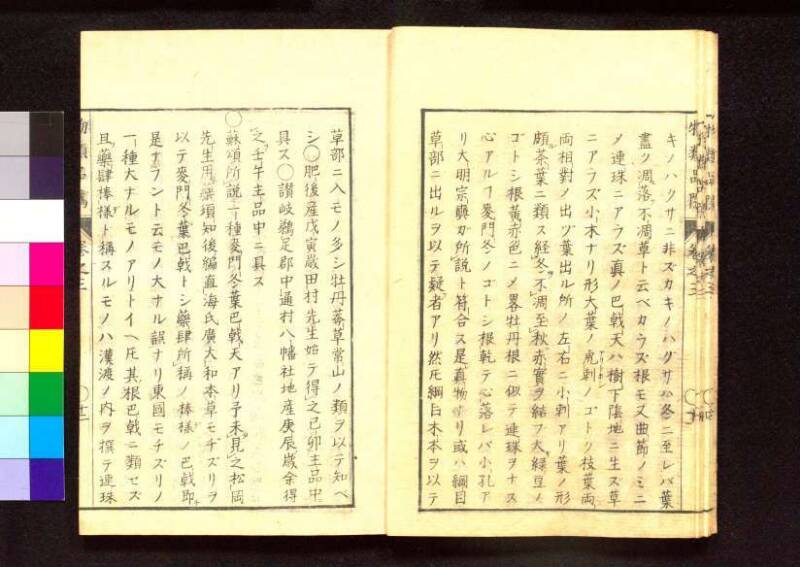 キノハクサニ非ズカキノハグサハ冬ニ至レバ葉
盡ク凋落ス不凋草ト云ベカラズ根モ又曲節ノミニ
メ連珠ニアラズ真ノ巴戟天ハ樹下陰地ニ生ズ草
ニアラズ小木ナリ形大葉ノ虎刺ノゴトク枝葉両
両相對メ出ヅ葉出ル所ノ左右ニ小刺アリ葉ノ形
頗茶葉ニ類ス経冬不凋至秋赤實ヲ結フ大緑豆ノ
ゴトシ根黄赤色ニメ畧牡丹根ニ似テ連珠ヲナス
心アルヿ麥門冬ノゴトシ根乾テ心落レバ小孔ア
リ大明宗藤ガ所説ト符合ス是真物ナリ或ハ綱目
草部ニ出ルヲ以テ疑者アリ然𪜈綱目木本ヲ以テ
草部ニ入モノ多シ牡丹莽草常山ノ類ヲ以テ知ベ
シ○肥後産戊寅歳田村先生始テ得之己卯主品中
具ス○讃岐鵜足郡中通村八幡社地産庚辰歳余得
之壬午主品中ニ具ス
○蘇頌所説一種麥門冬葉巴戟天アリ予未見之松岡
先生用藥須知後編直海氏廣大和本草モヂズリヲ
以テ麥門冬葉巴戟トシ藥肆所稱ノ棒様ノ巴戟即
是ナラント云モノ大ナル誤ナリ東國モヂズリノ
一種大ナルモノアリトイヘ𪜈其根巴戟ニ類セズ
且藥肆棒様ト稱スルモノハ漢渡ノ内ヲ撰テ連珠